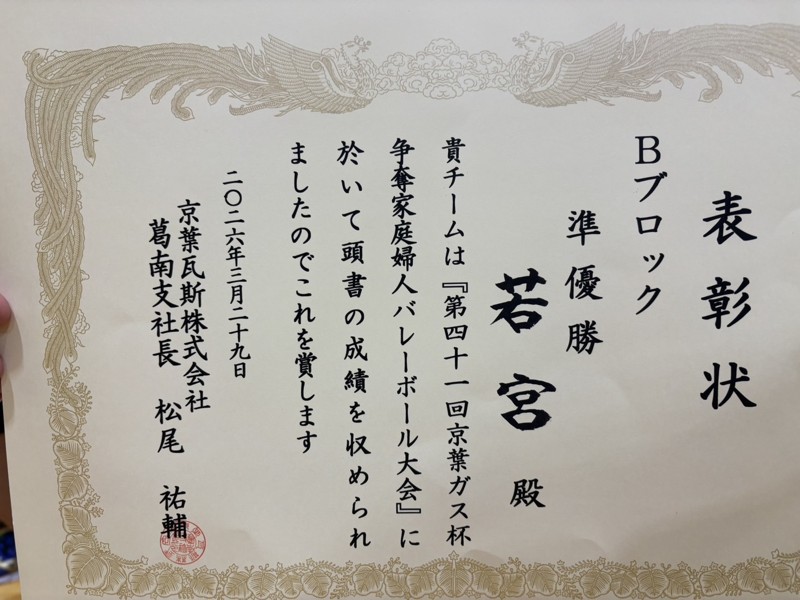 表彰状
Bブロック
準優勝
若宮 殿
貴チームは『第四十一回京葉ガス杯
争奪家庭婦人バレーボール大会』に
於いて頭書の成績を収められ
ましたのでこれを賞します
二〇二六年三月二十九日
京葉瓦斯株式会社
葛南支社長 松尾 祐輔